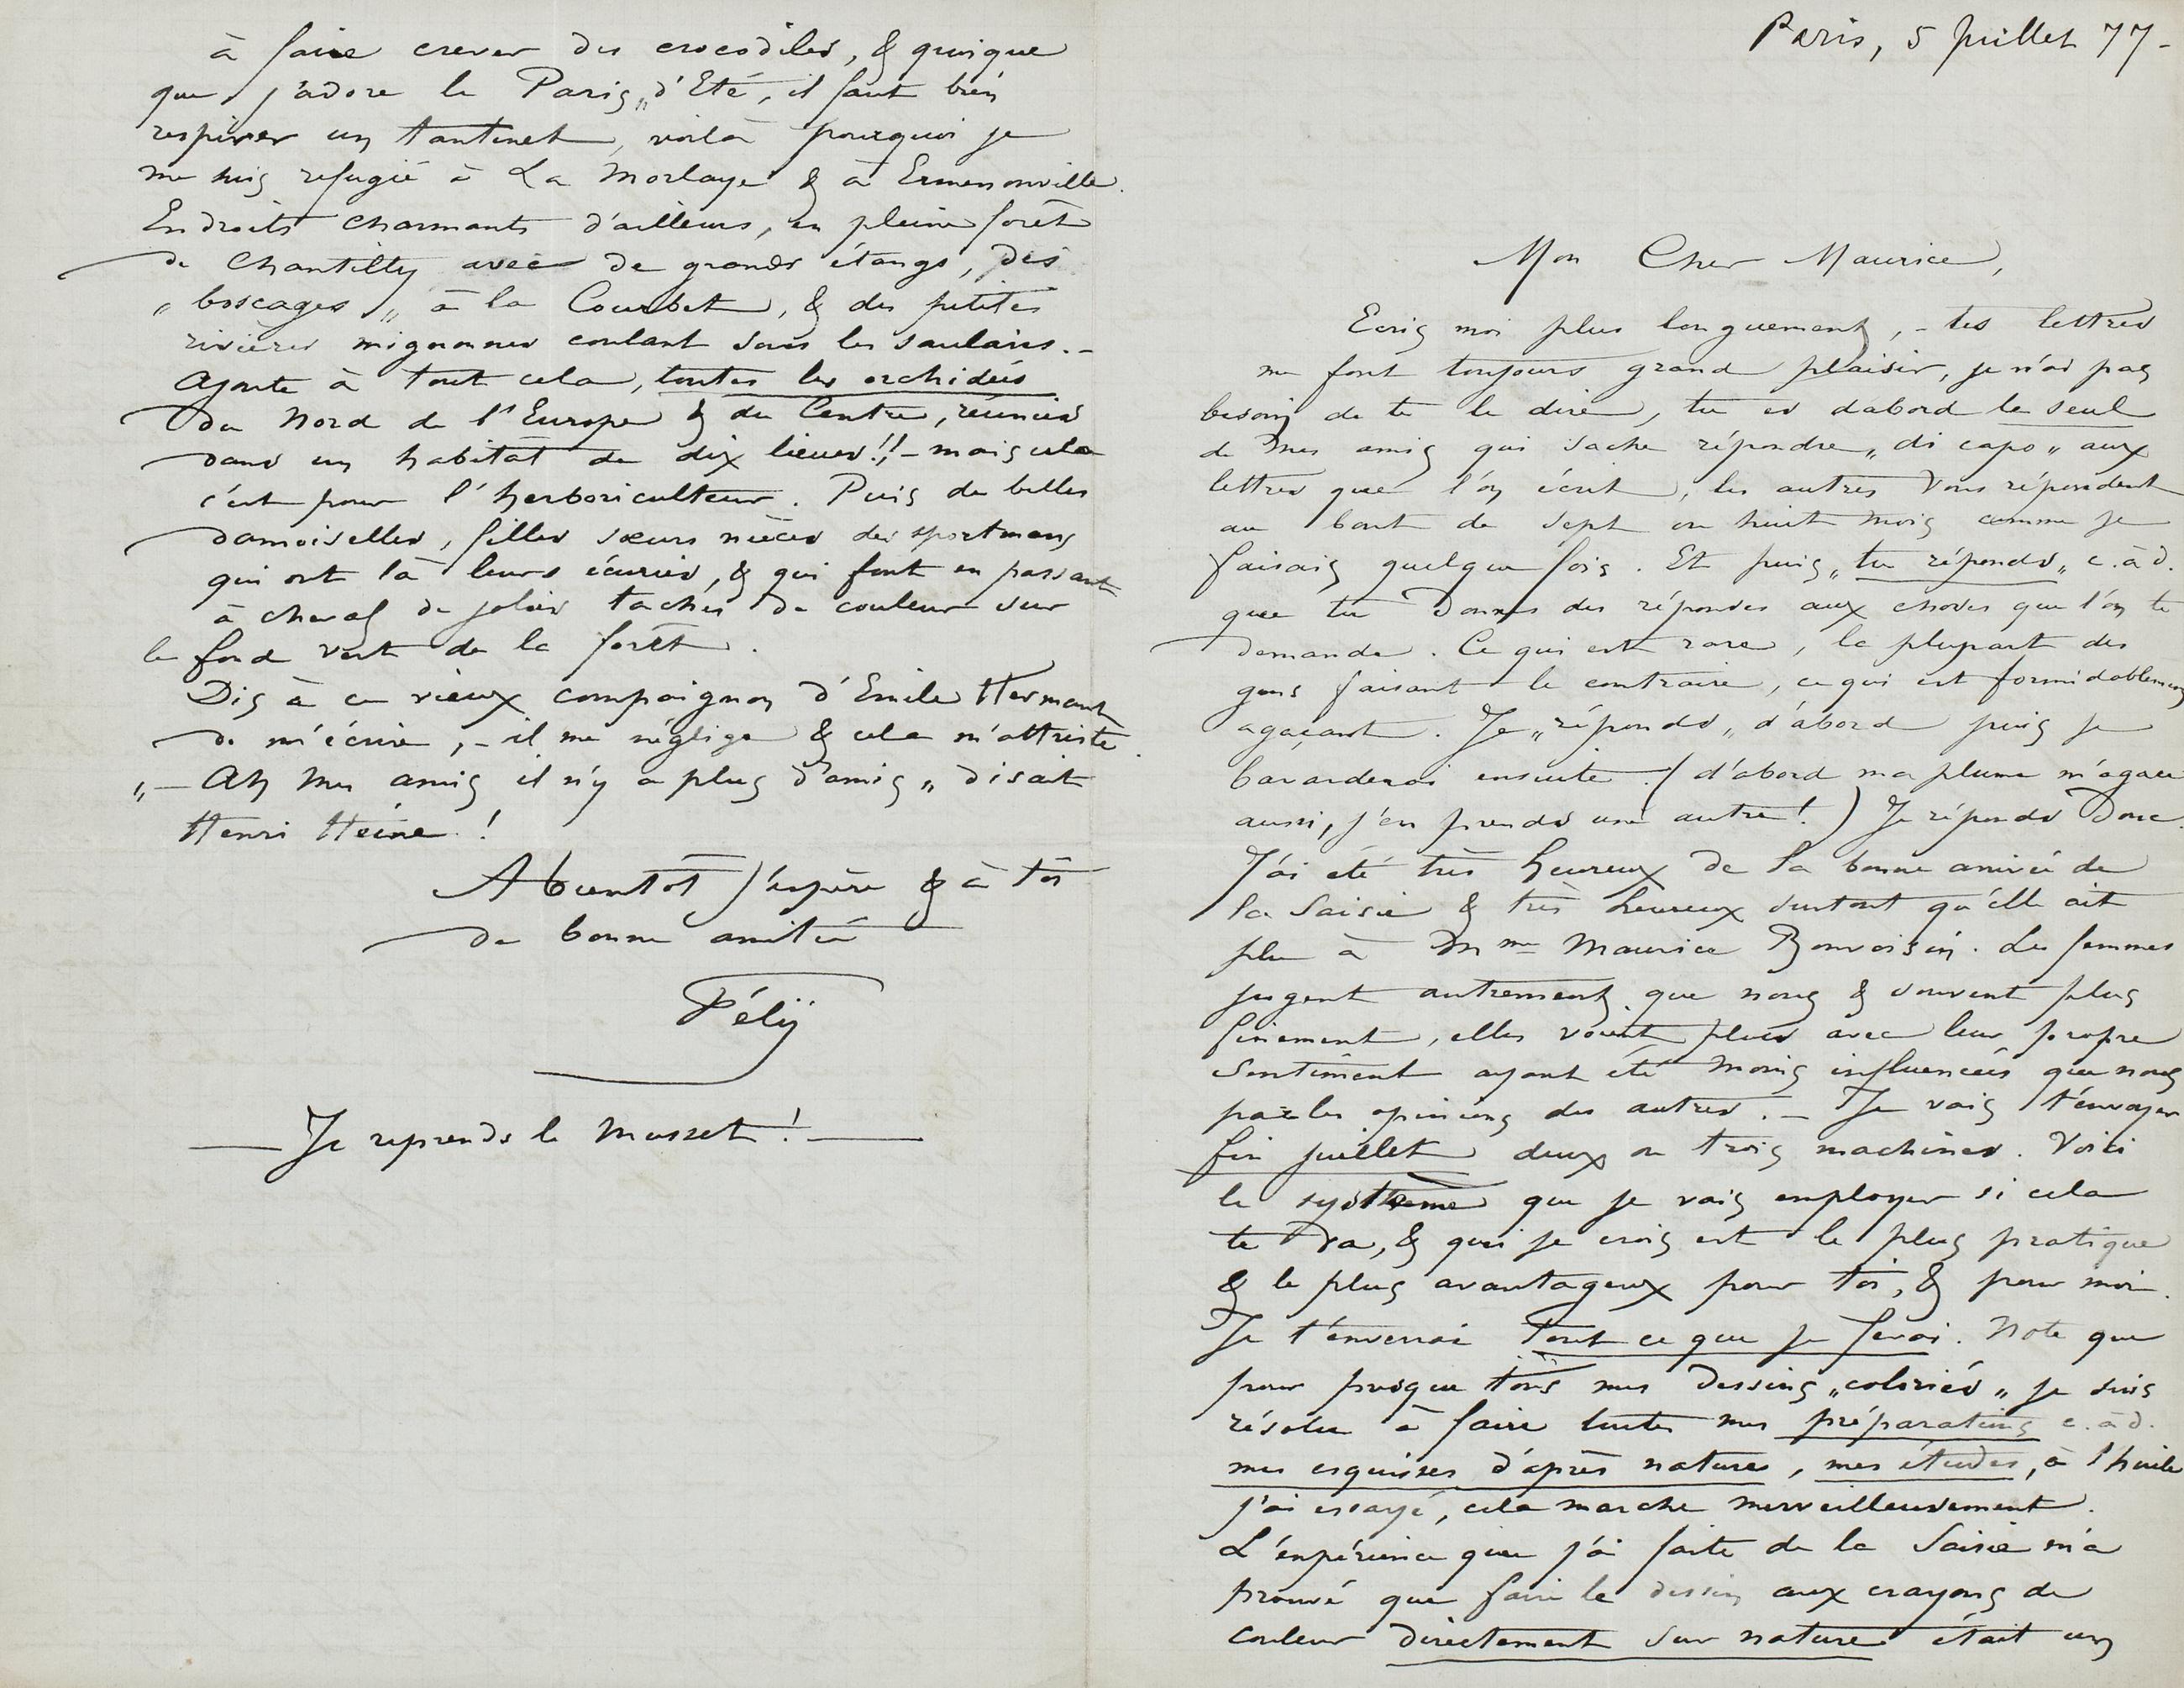 Paris, 5 Juillet 77-
Mon Cher Maurice,
Ecris moi plus longuement, - tes lettres
me font toujours grand plaisir, je n'ai pas
besoin de te le dire, tu es dabord le seul
de mes amis qui sache répondre „di capo„ aux
lettres que l'on écrit, les autres vous répondent
au bout de sept ou huit mois comme je
faisais quelque fois. Et puis „tu réponds„ c.à d.
que tu donnes des réponses aux choses que l'on te
demande. Ce qui est rare, la plupart des
gens faisant le contraire, ce qui est formidablement
agaçant. Je „réponds„ d'abord puis je
bavarderai ensuite. (d'abord ma plume m'agace
aussi, j'en prends une autre!) Je réponds donc.
J'ai été très heureux de la bonne arrivée de
la Saisie & très heureux surtout qu'elle ait
plu à Mme Maurice Bonvoisin. Les femmes
jugent autrement que nous & souvent plus
finement, elles voient plus avec leur propre
sentiment ayant été moins influencées que nous
par les opinions des autres. - Je vais t'envoyer
fin juillet deux ou trois machines. Voici
le système que je vais employer si cela
te va, & qui je crois est le plus pratique
& le plus avantageux pour toi, & pour moi.
Je t'enverrai Tout ce que je ferai. Note que
pour presque tous mes dessins „coloriés„ je suis
résolu à faire toutes mes préparations c.à d.
mes esquisses d'après nature, mes études, à l'huile
j'ai essayé, cela marche merveilleusement.
L'expérience que j'ai faite de la Saisie m'a
prouvé que faire le dessin aux crayons de
couleur directement sur nature était un
à faire crever des crocodiles, & quoique
que j'adore le Paris „d'Eté, il faut bien
respirer un tantinet, voilà pourquoi je
me suis refugié à La Morlaye & à Ermenonville.
Endroits charmants d'ailleurs, en pleine forêt
de Chantilly avec de grands étangs, des
„boscages„ à la Courbet, & des petites
rivières mignonnes coulant sous les saulaies. -
Ajoute à tout cela, toutes les orchidées
du Nord de l'Europe & du Centre, réunies
dans un habitat de dix lieues!! - mais cela
c'est pour l'herboriculteur. Puis de belles
damoiselles, filles sœurs nièces des sportmans
qui ont là leurs écuries, & qui font en passant
à cheval de jolies taches de couleur sur
le fond vert de la forêt.
Dis à ce vieux compaignon d'Emile Hermant
de m'écrire, - il me néglige & cela m'attriste.
„ - Ah mes amis il n'y a plus d'amis„ disait
Henri Heine!
A bientôt j'espère & à toi
de bonne amitié
Fély
Je reprends le Musset! -